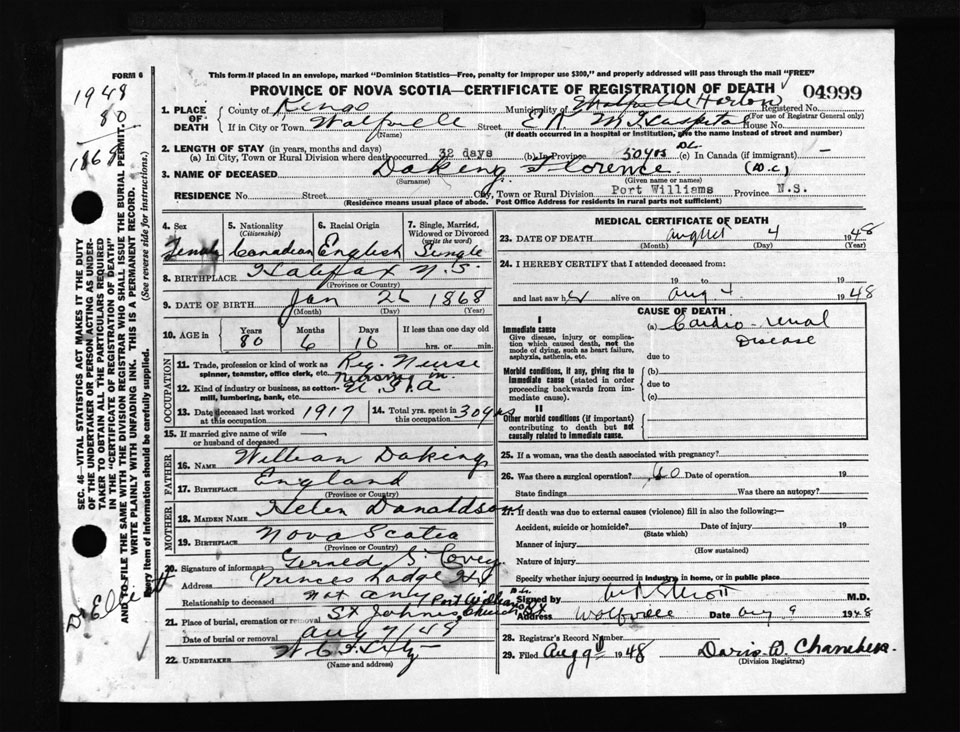 FORM 6
This form if placed in an envelope, marked "Dominion Statistics—Free, penalty for improper use $300," and properly addressed will pass through the mail "FREE"
PROVINCE OF NOVA SCOTIA—CERTIFICATE OF REGISTRATION OF DEATH
04999
1948
80
1868
1. PLACE OF DEATH
County of Kings Municipality of Wolfville Horton Registered No.
(For use of Registrar General only)
If in City or Town Wolfville Street E K M Hospital House No.
(Name) (If death occurred in a hospital or institution, give the name instead of street and number)
2. LENGTH OF STAY (in years, months and days)
(a) In City, Town or Rural Division where death occurred 32 days (b) In Province 50yrs (c) In Canada (if immigrant) —
3. NAME OF DECEASED Daking Florence (D.C.)
(Surname) (Given name or names)
RESIDENCE No. Street City, Town or Rural Division Port Williams Province N.S.
(Residence means usual place of abode. Post Office Address for residents in rural parts not sufficient)
4. Sex Female
5. Nationality (Citizenship) Canadian
6. Racial Origin English
7. Single, Married, Widowed or Divorced (write the word) Single
8. BIRTHPLACE Halifax N.S.
(Province or County)
9. DATE OF BIRTH Jan 26 1868
(Month) (Day) (Year)
10. AGE in Years Months Days If less than one day old
80 6 10 hrs. or min.
OCCUPATION
11. Trade, profession or kind of work as spinner, teamster, office clerk, etc. Reg. Nurse
12. Kind of industry or business, as cotton-mill, lumbering, bank, etc.
13. Date deceased last worked at this occupation 1917
14. Total yrs. spent in this occupation 30 yrs
15. If married give name of wife or husband of deceased —
FATHER
16. NAME William Daking
17. BIRTHPLACE England
(Province or Country)
MOTHER
18. MAIDEN NAME Helen Donaldson
19. BIRTHPLACE Nova Scotia
(Province or Country)
20. Signature of informant Gerald S. Covey
Address Princes Lodge Hfx
Relationship to deceased not any
21. Place of burial, cremation or removal St Johns Church
Date of burial or removal Aug 7/48
22. UNDERTAKER
(Name and address)
MEDICAL CERTIFICATE OF DEATH
23. DATE OF DEATH August 4 1948
(Month) (Day) (Year)
24. I HEREBY CERTIFY that I attended deceased from:
19 to 19
and last saw her alive on Aug. 4 1948
CAUSE OF DEATH
I
Immediate cause
Give disease, injury or complication which caused death, not the mode of dying, such as heart failure, asphyxia, asthenia, etc.
(a) Cardio-renal Disease
due to
Morbid conditions, if any, giving rise to immediate cause (stated in order proceeding backwards from immediate cause).
(b)
due to
(c)
II
Other morbid conditions (if important) contributing to death but not causally related to immediate cause.
25. If a woman, was the death associated with pregnancy?
26. Was there a surgical operation? No Date of operation 19
State findings Was there an autopsy?
27. If death was due to external causes (violence) fill in also the following:—
Accident, suicide or homicide? Date of injury 19
(State which)
Manner of injury
(How sustained)
Nature of injury
Specify whether injury occurred in industry, in home, or in public place
Signed by M.D.
Address Wolfville Date Aug 9 1948
28. Registrar's Record Number
29. Filed Aug 9 1948 Doris W. Chambers
(Division Registrar)
SEC. 46—VITAL STATISTICS ACT MAKES IT THE DUTY
OF THE UNDERTAKER OR PERSON ACTING AS UNDER-
TAKER TO OBTAIN ALL THE PARTICULARS REQUIRED
IN THE "CERTIFICATE OF REGISTRATION OF DEATH"
AND TO FILE THE SAME WITH THE DIVISION REGISTRAR WHO SHALL ISSUE THE BURIAL PERMIT.
WRITE PLAINLY WITH UNFADING INK. THIS IS A PERMANENT RECORD.
Every item of information should be carefully supplied. (See reverse side for instructions.)
Dr Elliott